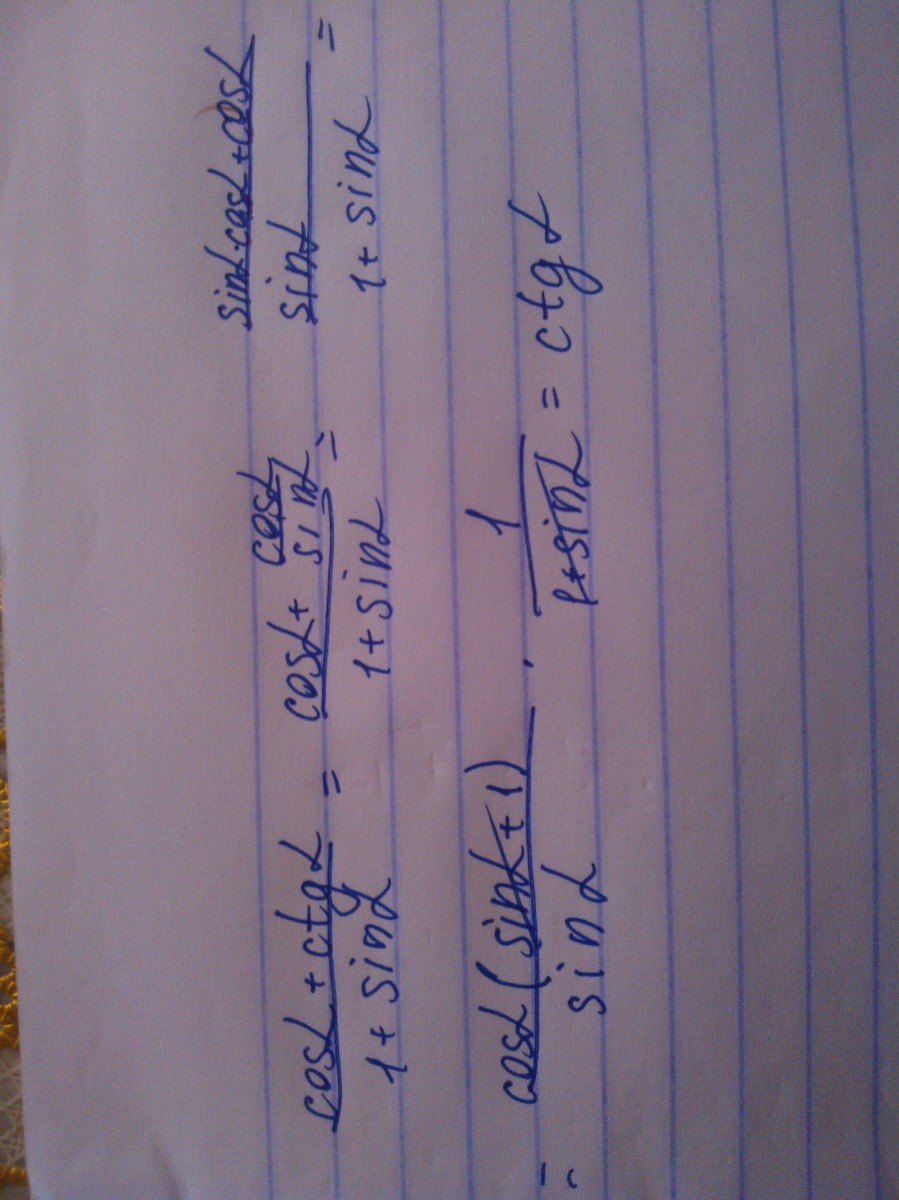 (cosα + ctgα)/(1 + sinα) = (cosα + cosα/sinα)/(1 + sinα) = ((sinα·cosα + cosα)/sinα)/(1 + sinα) =
= cosα(sinα + 1)/sinα · 1/(1 + sinα) = ctgα